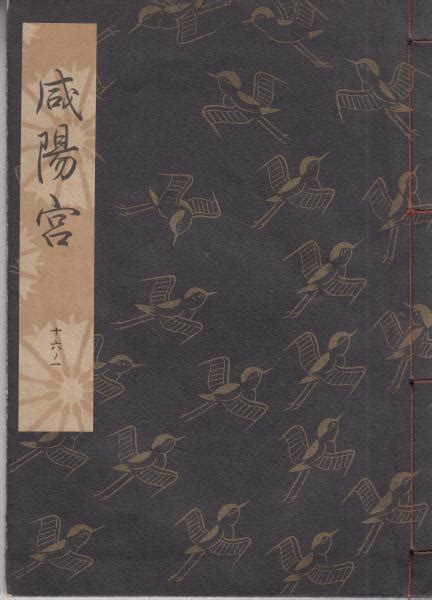 咸陽宮
十六ノ一